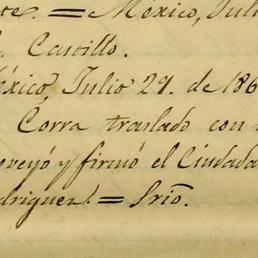 te. = México, Juli
. Castillo.
éxico, Julio 29. de 186
Corra traslado con
oveyó y firmó el Ciudada
driguez. = Srio.